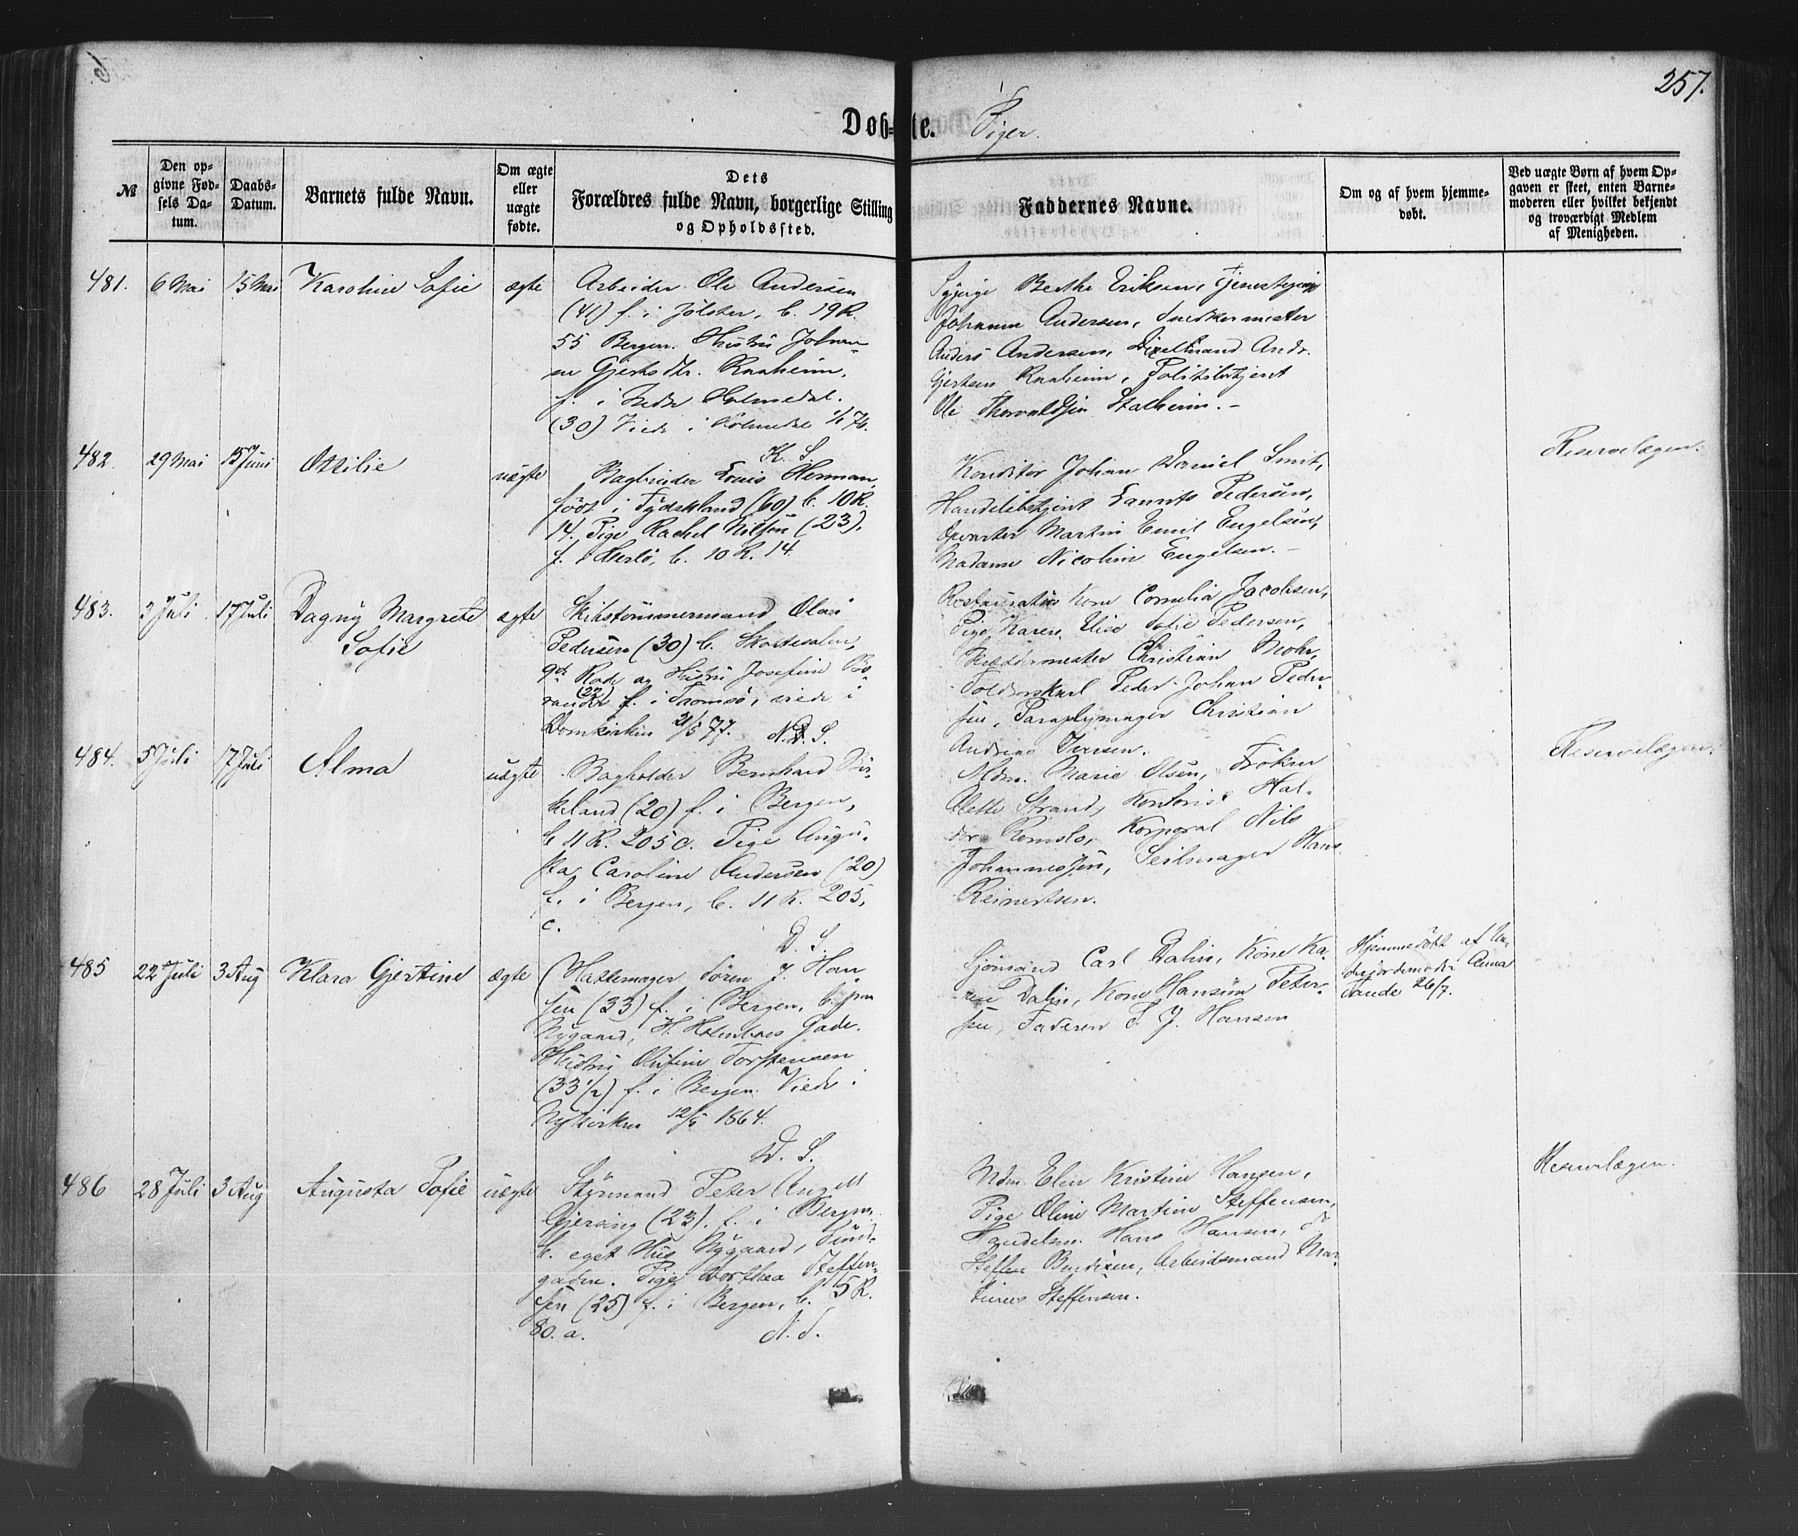 257.
Døb-te. Piger.
№
Den op-
givne Fød-
sels Da-
tum.
Daabs-
Datum.
Barnets fulde Navn.
Om ægte
eller
uægte
fødte.
Dets
Forældres fulde Navn, borgerlige Stilling
og Opholdssted.
Faddernes Navne.
Om og af hvem hjemme-
døbt.
Ved uægte Børn af hvem Op-
gaven er skeet, enten Barne-
moderen eller hvilket bekjendt
og troværdigt Medlem
af Menigheden.
481. 6 Mai 15 Mai Karoline Sofie ægte
Arbeider Ole Andersen
(41) f. i Jølster, b. 19 R.
55 Bergen. Hustru Johan-
ne Gjertsdtr. Raaheim,
f. i Indre Holmedal.
(30) Viede i Holmedal
K. S.
Berthe Eriksen,
Johanne Andersen, Snedkermester
Anders Andersen, Andr.
Gjertsen Raaheim, Politibetjent
Ole Thorvaldsen Stalheim. –
482. 29 Mai 15 Juni Ottilie uægte
Bogbinder Louis Herman,
født i Tydskland (60) b. 10 R.
14. Pige Rachel Nilsen (23),
f. i Herlø, b. 10 R. 14.
Konditor Johan Daniel Smit,
Handelsbetjent Laurits Pedersen,
Opvarter Martin Emil Engelsen,
Madame Nicoline Engelsen. –
Reservelægen.
483. 3 Juli 17 Juli Dagny Margrete
Sofie
ægte
Skibstømmermand Olai
Pedersen (30) b. Skottesalen,
9de Rode og Hustru Josefine
(22) f. i Tromsø, viede i
Domkirken 21/5 77. N. S.
Kone Cornelia Jacobsen,
Pige Karen Elise Sofie Pedersen,
Christian Mohr,
Peder Johan Peder-
sen, Paraplymager Christian
Andreas Iversen.
484. 5 Juli 17 Juli Alma uægte
Bogholder Bernhard Bir-
keland (20) f. i Bergen,
b. 11 R. 205 c. Pige Augu-
sta Caroline Andersen (20)
f. i Bergen, b. 11 R. 205,
c.
D. S.
Mdm. Marie Olsen, Frøken
Strand, Kontorist Hal-
dor Romslo, Korporal Nils
Johannessen, Seilmager Hans
Reinertsen.
Reservelægen.
485 22 Juli 3 Aug Klara Gjertine ægte
Hattemager Søren J. Han-
sen (33) f. i Bergen, b. paa
Nygaard, H. Holmboes Gade.
Hustru Torstensen
(33 1/2) f. i Bergen. Viede i
Nykirken 12/5 1864.
D. S.
Sjømand Carl Dalin, Kone Ka-
ren Dalin, Kone Hansine Peter-
sen, Faderen S. J. Hansen
Hjemmedøbt af
Jordemoder Anna
Tande 26/7.
486 28 Juli 3 Aug Augusta Sofie uægte
Styrmand Peter Angell
Gjersing (23). f. i Bergen,
b. eget Hus Nygaard, Sund-
gaden. Pige Dorthea Steffen-
sen (25) f. i Bergen, b. 5 R.
80. a. N. S.
Mdm. Elen Kristine Hansen,
Pige Oline Martine Steffensen,
Handelsm. Hans Hansen,
Steffen Bendixen, Arbeidsmand Mar-
tinus Steffensen.
Reservelægen.